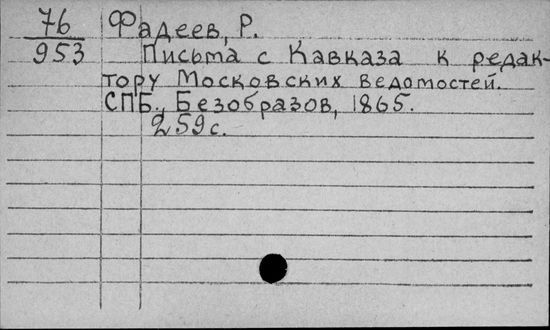 76 Фадеев, Р.
953 Письма с Кавказа к редак-
тору Московских ведомостей.
СПБ., Безобразов, 1865.
259 с.